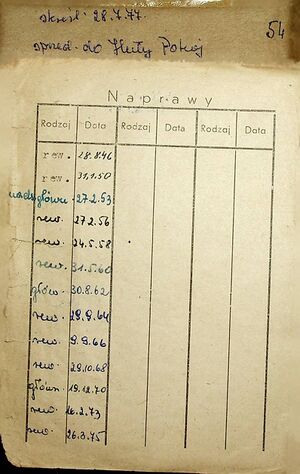 skreśl. 28.7.77.
sprzed. do Huty Pokój
54
Naprawy
Rodzaj Data Rodzaj Data Rodzaj Data
rew. 28.8.46
rew. 31.1.50
główn. 27.2.53
rew. 27.2.56
rew. 24.5.58
rew. 31.5.60
główn. 30.8.62
rew. 29.9.64
rew. 9.9.66
rew. 29.10.68
główn. 19.12.70
rew. 16.2.73
rew. 26.3.75